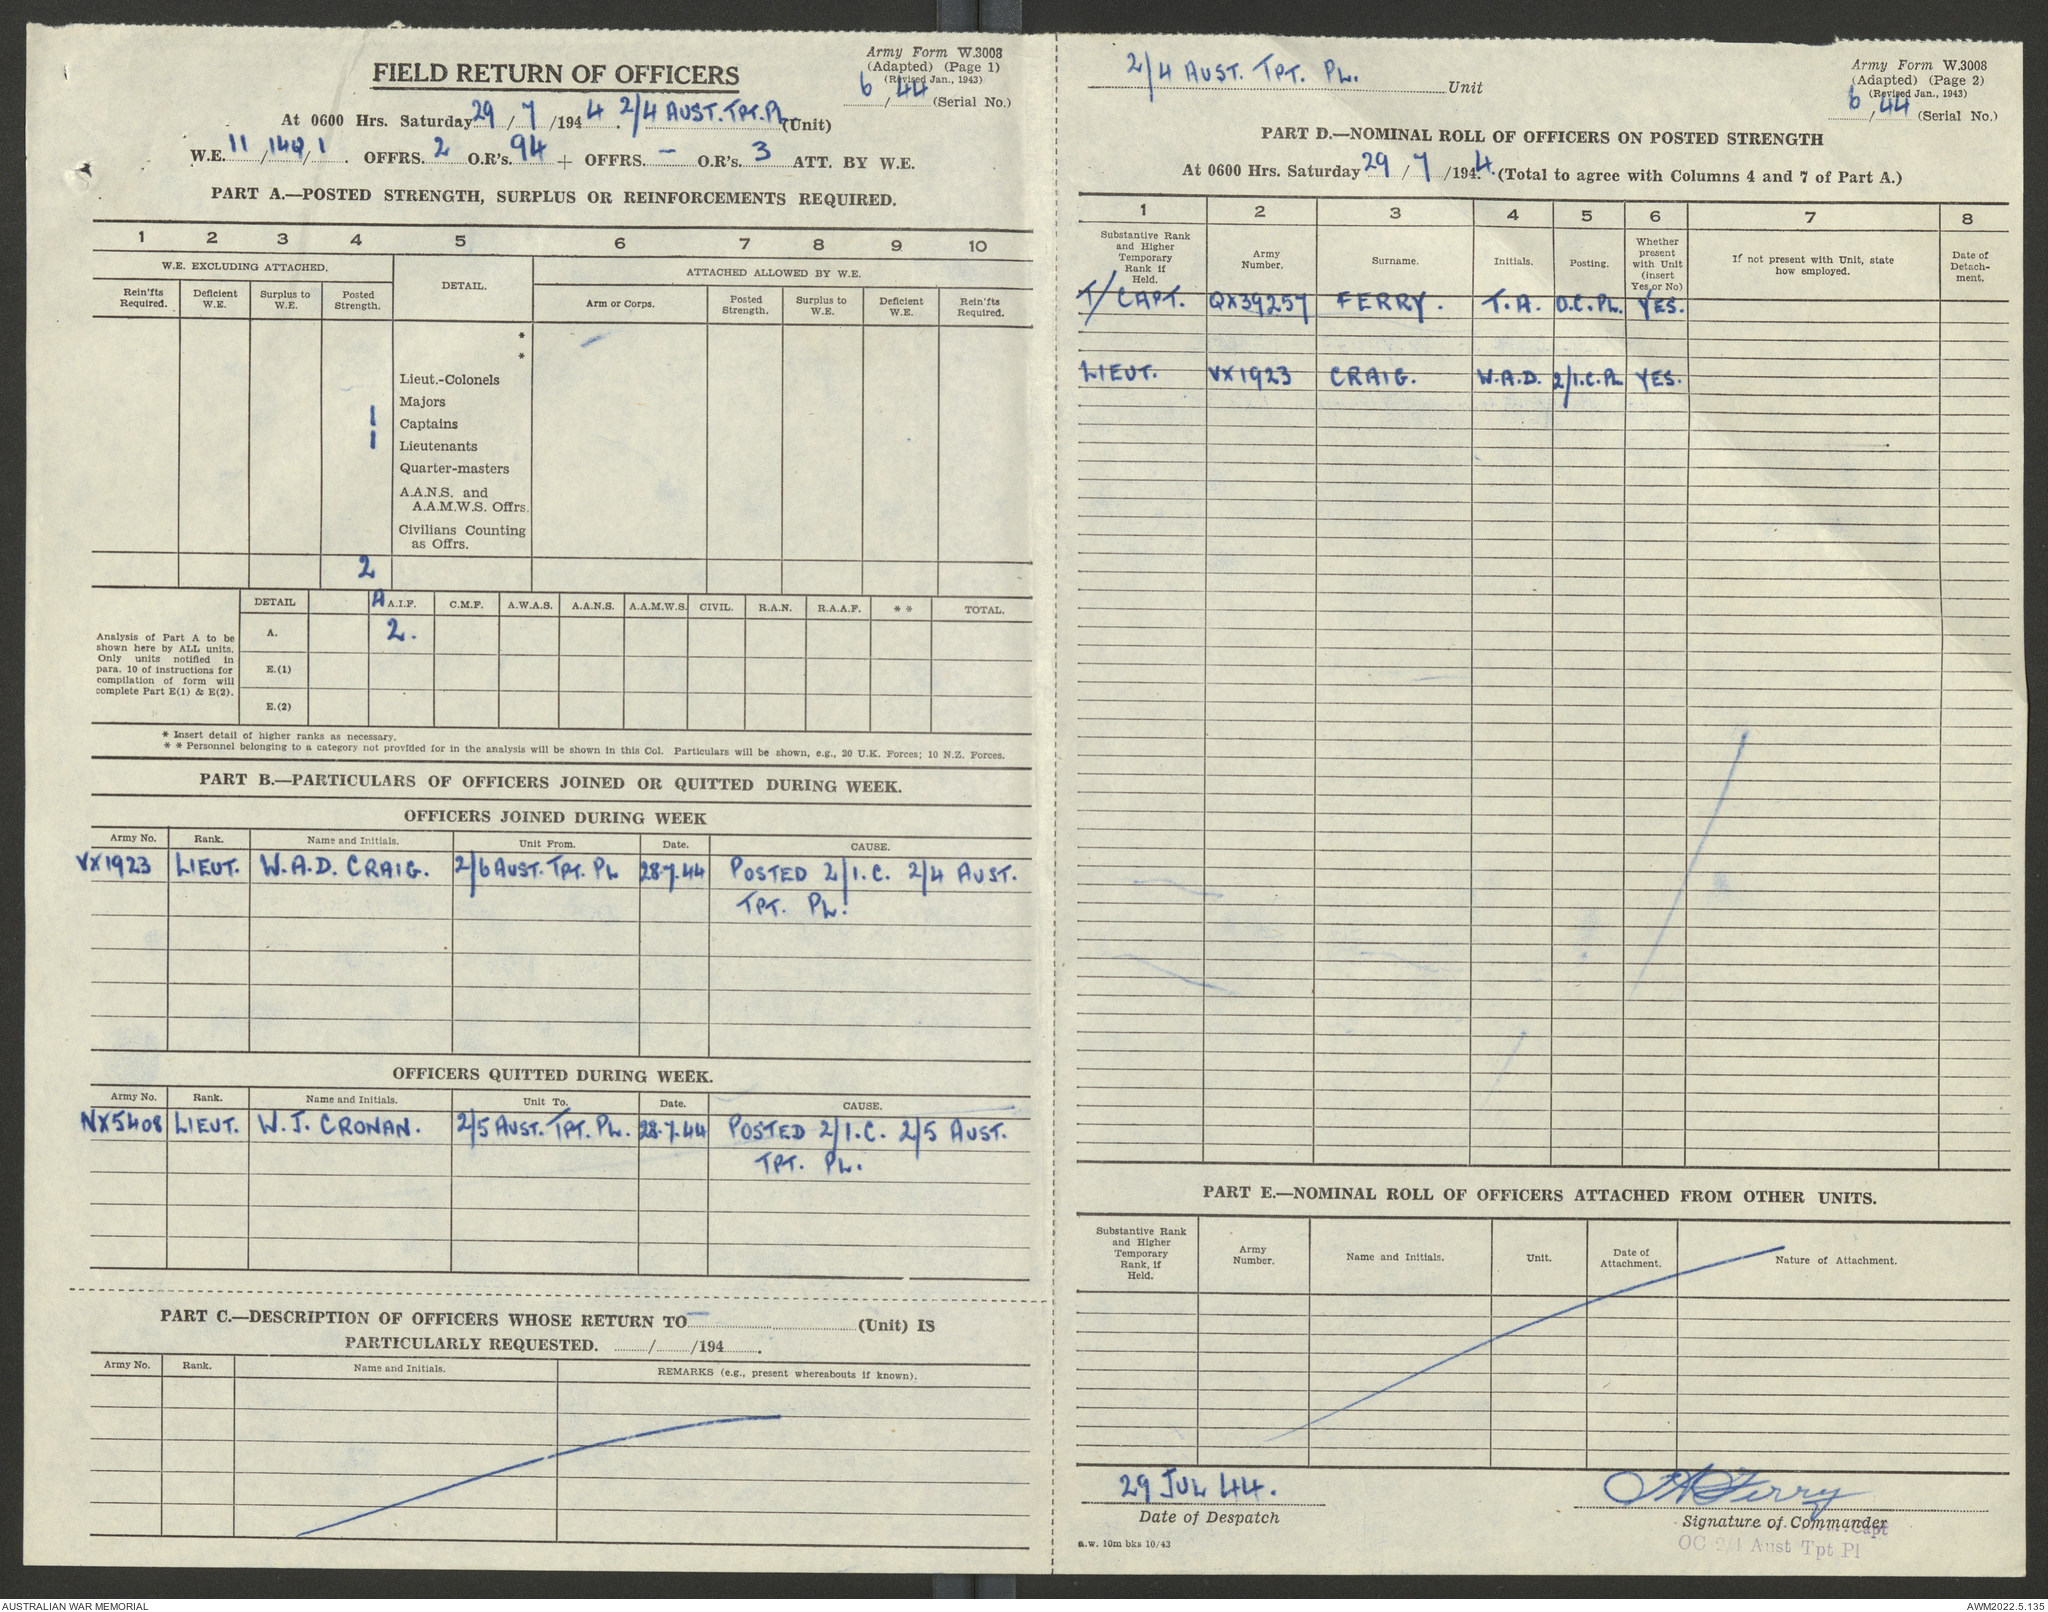 Army Form W.3008
(Adapted) (Page 1)
(Revised Jan., 1943)
6/44 (Serial No.)
FIELD RETURN OF OFFICERS
At 0600 Hrs. Saturday 29/7/1944. 2/4 AUST. TPT. PL. (Unit)
W.E. 11/140/1. OFFRS. 2 O.R's. 94 + OFFRS. - O.R's. 3 ATT. BY W.E.
PART A.—POSTED STRENGTH, SURPLUS OR REINFORCEMENTS REQUIRED.
1 2 3 4 5 6 7 8 9 10
W.E. EXCLUDING ATTACHED. DETAIL. ATTACHED ALLOWED BY W.E.
Rein'fts Required. Deficient W.E. Surplus to W.E. Posted Strength. Arm or Corps. Posted Strength. Surplus to W.E. Deficient W.E. Rein'fts Required.
*
*
Lieut.-Colonels
Majors
1 Captains
1 Lieutenants
Quarter-masters
A.A.N.S. and
A.A.M.W.S. Offrs.
Civilians Counting
as Offrs.
2
DETAIL A A.I.F. C.M.F. A.W.A.S. A.A.N.S. A.A.M.W.S. CIVIL. R.A.N. R.A.A.F. * * TOTAL.
Analysis of Part A to be
shown here by ALL units.
Only units notified in
para. 10 of instructions for
compilation of form will
complete Part E(1) & E(2).
A. 2.
E.(1)
E.(2)
* Insert detail of higher ranks as necessary.
* * Personnel belonging to a category not provided for in the analysis will be shown in this Col. Particulars will be shown, e.g., 20 U.K. Forces; 10 N.Z. Forces.
PART B.—PARTICULARS OF OFFICERS JOINED OR QUITTED DURING WEEK.
OFFICERS JOINED DURING WEEK
Army No. Rank. Name and Initials. Unit From. Date. CAUSE.
VX1923 LIEUT. W.A.D. CRAIG. 2/6 AUST. TPT. PL 28.7.44 POSTED 2/I.C. 2/4 AUST.
TPT. PL.
OFFICERS QUITTED DURING WEEK.
Army No. Rank. Name and Initials. Unit To. Date. CAUSE.
NX5408 LIEUT. W.J. CRONAN. 2/5 AUST. TPT. PL. 28.7.44 POSTED 2/I.C. 2/5 AUST.
TPT. PL.
PART C.—DESCRIPTION OF OFFICERS WHOSE RETURN TO - (Unit) IS
PARTICULARLY REQUESTED. ....../....../194......
Army No. Rank. Name and Initials. REMARKS (e.g., present whereabouts if known).
2/4 AUST. TPT. PL. Unit
Army Form W.3008
(Adapted) (Page 2)
(Revised Jan., 1943)
6/44 (Serial No.)
PART D.—NOMINAL ROLL OF OFFICERS ON POSTED STRENGTH
At 0600 Hrs. Saturday 29/7/1944. (Total to agree with Columns 4 and 7 of Part A.)
1 2 3 4 5 6 7 8
Substantive Rank and Higher Temporary Rank if Held. Army Number. Surname. Initials. Posting. Whether present with Unit (insert Yes or No) If not present with Unit, state how employed. Date of Detach-ment.
T/CAPT. QX39257 FERRY. T.A. O.C.PL. YES.
LIEUT. VX1923 CRAIG. W.A.D. 2/I.C.PL YES.
PART E.—NOMINAL ROLL OF OFFICERS ATTACHED FROM OTHER UNITS.
Substantive Rank and Higher Temporary Rank, if Held. Army Number. Name and Initials. Unit. Date of Attachment. Nature of Attachment.
29 JUL 44. TAFerry
Date of Despatch Signature of Commander
Capt
OC 2/4 Aust Tpt Pl
a.w. 10m bks 10/43
AUSTRALIAN WAR MEMORIAL AWM2022.5.135